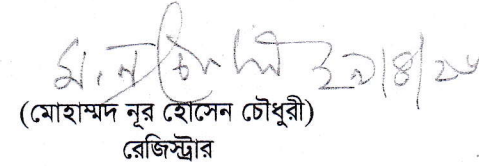 ২৯/৪/২৮
(মোহাম্মদ নূর হোসেন চৌধুরী)
রেজিস্ট্রার